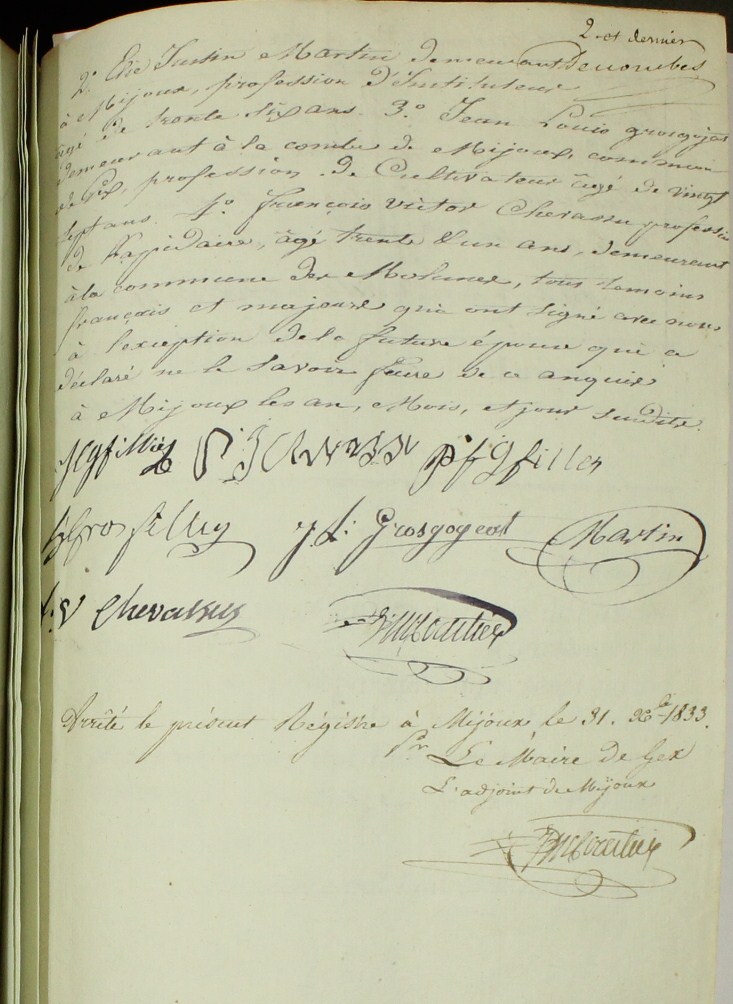 2. et dernier
2° Elie Justin Martin demeurant
à Mijoux, profession d'Instituteur
âgé de trente six ans. 3° Jean Louis grosgojat
demeurant à la combe de Mijoux, commune
de Gex, profession de Cultivateur âgé de vingt
sept ans. 4° françois victor Chevassu profession
de Lapidaire, âgé trente & un ans, demeurant
à la commune des Molunes, tous temoins
français et majeurs qui ont signé avec nous
à l'exception de la future épouse qui a
déclaré ne le savoir faire de ce enquise
à Mijoux les an, Mois, et jour susdits.
j. L. Grosgogeat Martin
Chevassus
Arrêté le présent Régistre à Mijoux le 31. Xbre 1833.
Pr Le Maire de Gex
L'adjoint de Mijoux